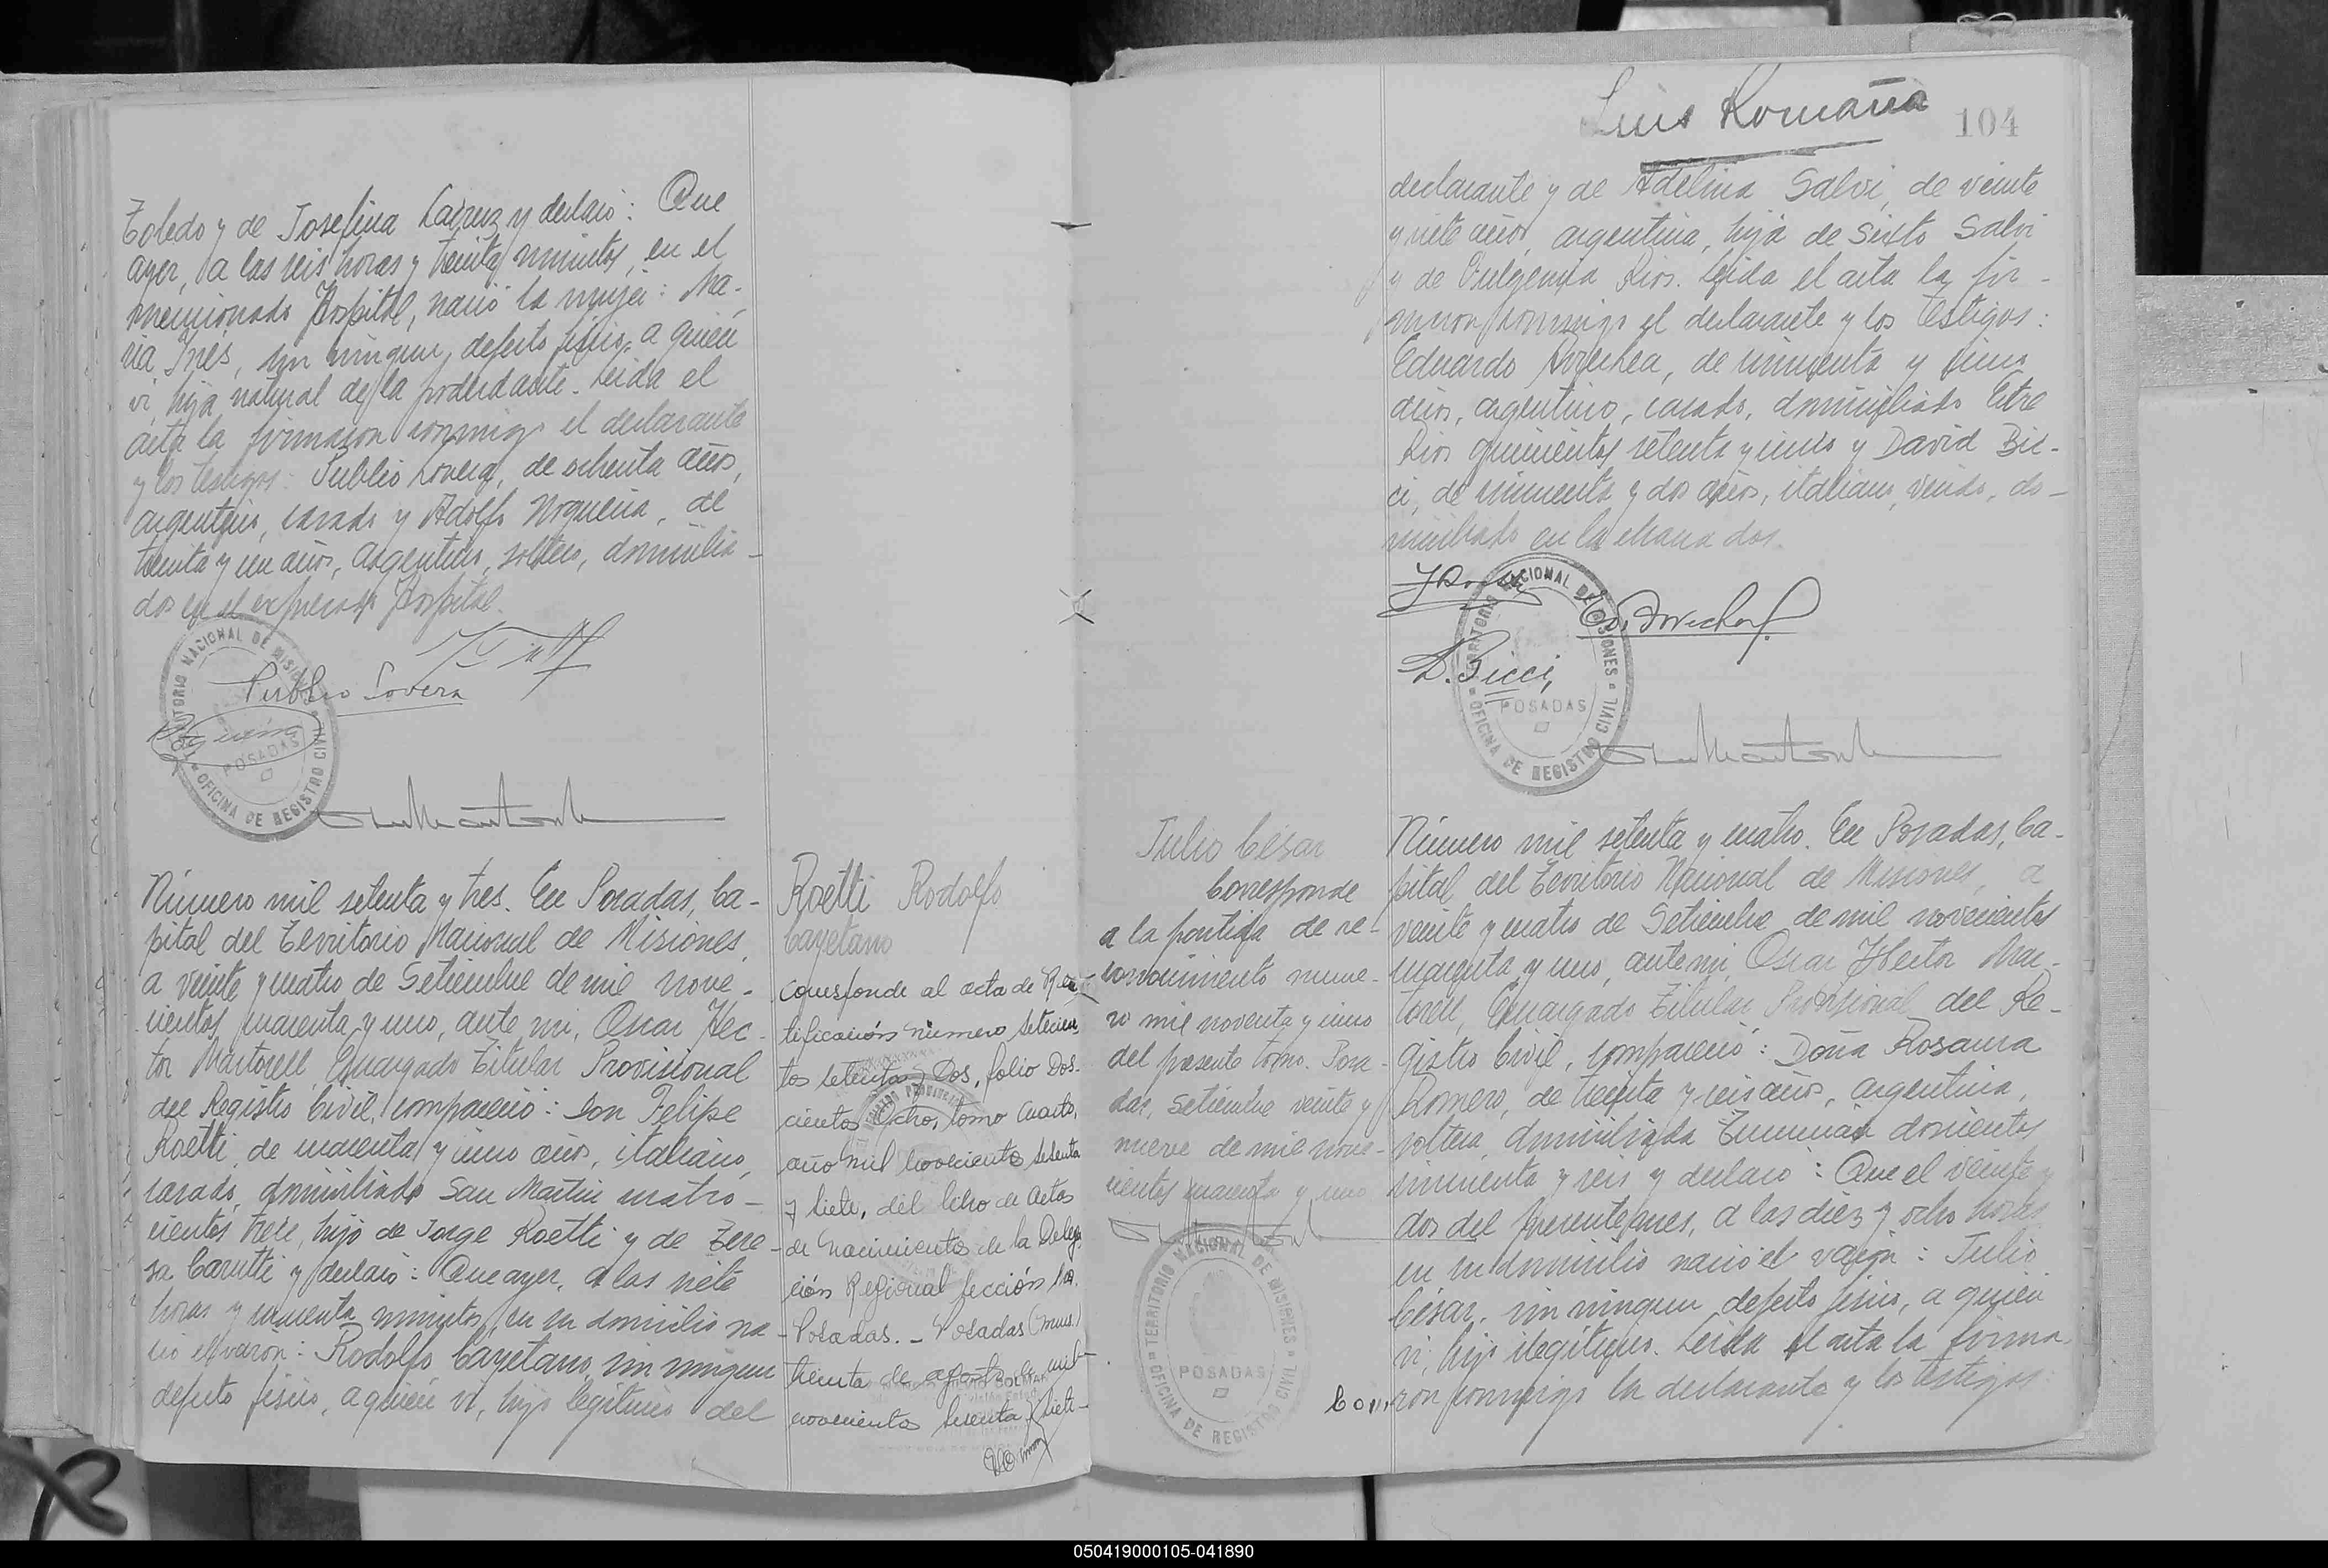 Toledo y de Josefina Lairuz y declaró: Que
ayer, a las seis horas y treinta minutos, en el
mencionado Hospital, nació la mujer: Ma-
ría Inés, sin ningun defecto físico, a quién
vi, hija natural de la poderdante. Leída el
acta la firmaron conmigo el declarante
y los testigos: Publio Lovera, de ochenta años,
argentino, casado y Adolfo Noguera, de
treinta y un años, argentino, soltero, domicilia-
dos en el expresado Hospital.
Publio Lovera
TERRITORIO NACIONAL DE MISIONES
POSADAS
OFICINA DE REGISTRO CIVIL
Número mil setenta y tres. En Posadas, Ca-
pital del Territorio Nacional de Misiones,
a veinte y cuatro de Setiembre de mil nove-
cientos cuarenta y uno, ante mi, Oscar Hec-
tor Martorell, Encargado Titular Provisional
del Registro Civil, compareció: Don Felipe
Roetti, de cuarenta y cinco años, italiano,
casado, domiciliado San Martin cuatro-
cientos trece, hijo de Jorge Roetti y de Tere-
sa Carutti y declaró: Que ayer, a las siete
horas y cincuenta minutos, en su domicilio na-
ció el varón: Rodolfo Cayetano, sin ningun
defecto físico, a quién vi, hijo legítimo del
Roetti Rodolfo
Cayetano
corresponde al acta de Rec-
tificación número setecien-
tos setenta y Dos, folio Dos-
cientos Ocho, tomo Cuarto,
año mil novecientos setenta
y siete, del libro de Actas
de Nacimientos de la Delega
ción Regional Sección 1a.
Posadas. - Posadas (Mnes.)
treinta de agosto de mil
novecientos setenta y siete-
Luis Romaña
104
declarante y de Adelina Salvi, de veinte
y siete años, argentina, hija de Sixto Salvi
y de Fulgencia Rios. Leída el acta la fir-
maron conmigo el declarante y los testigos:
Eduardo Arrechea, de cincuenta y cinco
años, argentino, casado, domiciliado Entre
Rios quinientos setenta y cinco y David Bic-
ci, de cincuenta y dos años, italiano, viudo, do-
miciliado en la chacra dos.
D. Bicci,
TERRITORIO NACIONAL DE MISIONES
POSADAS
OFICINA DE REGISTRO CIVIL
Julio César
Corresponde
a la partida de re-
conocimiento núme-
ro mil noventa y cinco
del presente tomo. Posa-
das, Setiembre veinte y
nueve de mil nove-
cientos cuarenta y uno
TERRITORIO NACIONAL DE MISIONES
POSADAS
OFICINA DE REGISTRO CIVIL
Número mil setenta y cuatro. En Posadas, Ca-
pital del Territorio Nacional de Misiones, a
veinte y cuatro de Setiembre de mil novecientos
cuarenta y uno, ante mi, Oscar Hector Mar-
torell, Encargado Titular Provisional del Re-
gistro Civil, compareció: Doña Rosaura
Romero, de treinta y seis años, argentina,
soltera, domiciliada Tucumán doscientos
cincuenta y seis y declaró: Que el veinte y
dos del presente mes, a las diez y ocho horas
en su domicilio nació el varón: Julio
César, sin ningun defecto físico, a quién
vi, hijo ilegítimo. Leída el acta la firma
ron conmigo la declarante y los testigos:
050419000105-041890